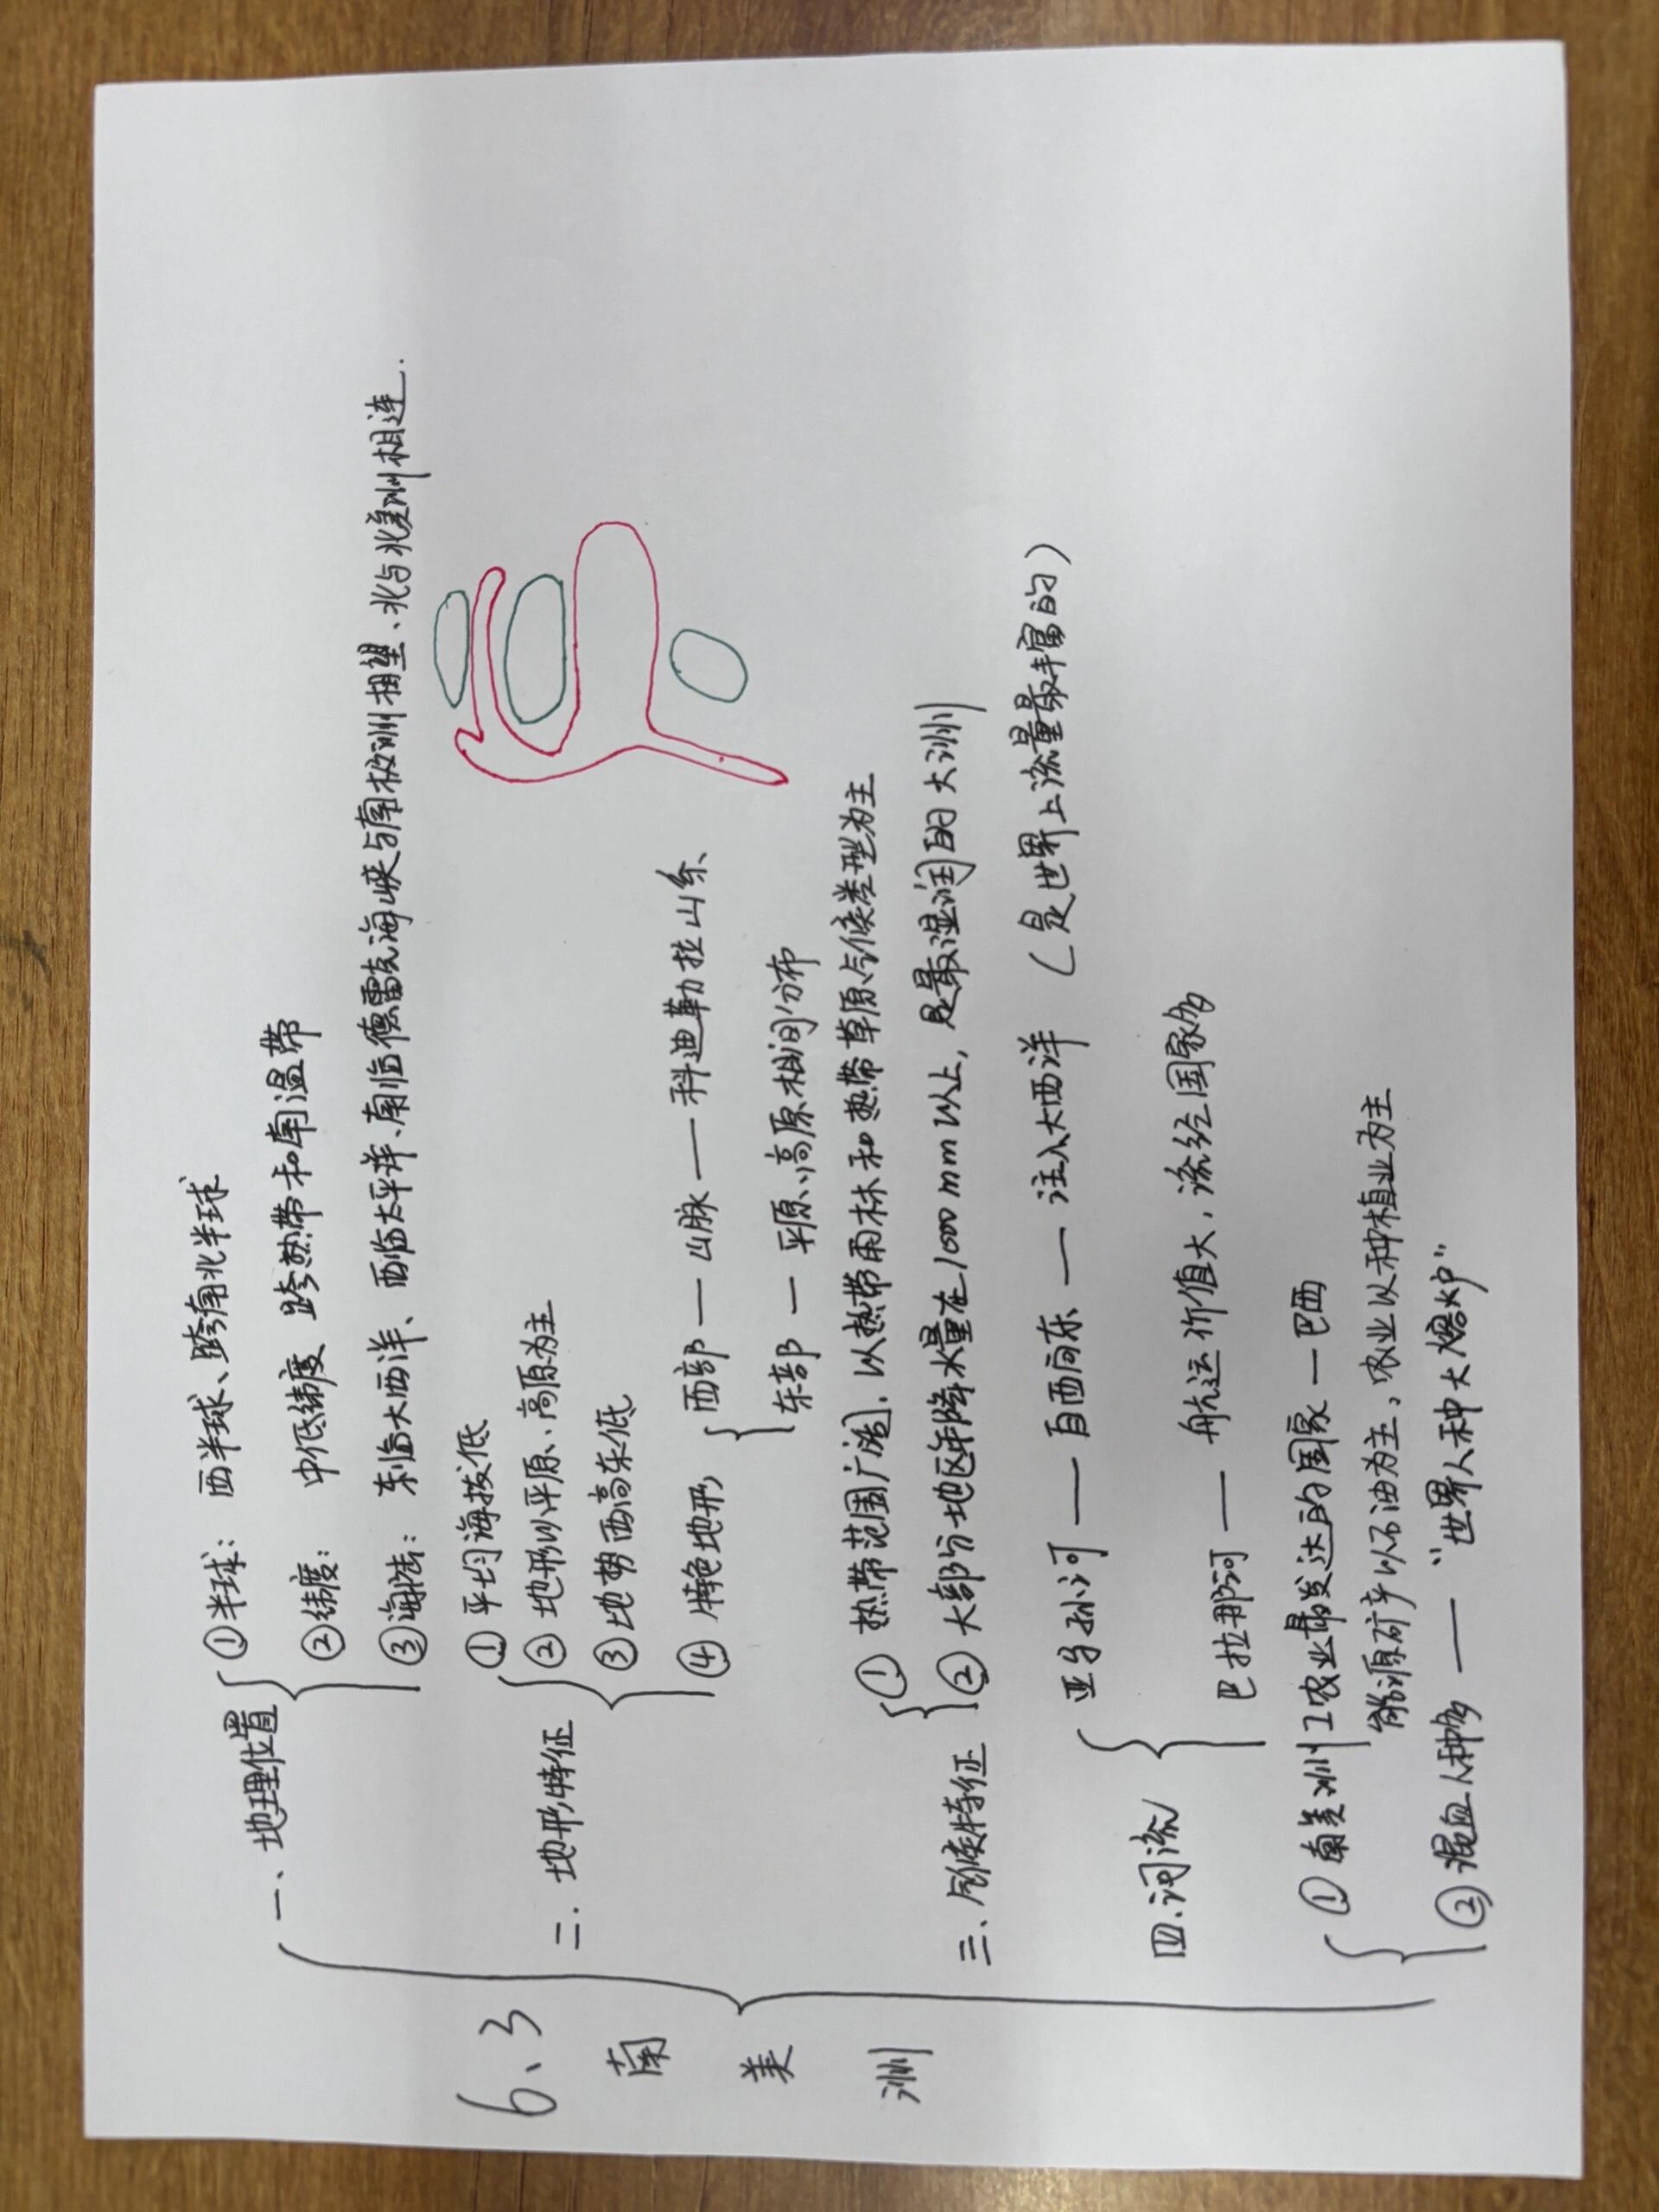 6、3
南美洲
一、地理位置
①半球：西半球、跨南北半球
②纬度：中低纬度 跨热带和南温带
③海陆：东临大西洋、西临太平洋、南临德雷克海峡与南极洲相望、北与北美洲相连．
二．地形特征
①平均海拔低
②地形以平原、高原为主
③地势西高东低
④特色地形
西部—山脉—科迪勒拉山系、
东部—平原、高原相间分布
三、气候特征
①热带范围广阔．以热带雨林和热带草原气候类型为主
②大部分地区年降水量在1000mm以上，是最湿润的大洲
四、河流
亚马孙河—自西向东—注入大西洋（是世界上流量最丰富的）
巴拉那河—航运价值大，流经国家多
①南美洲工农业最发达的国家—巴西
能源矿产以石油为主，农业以种植业为主
②混血人种多—“世界人种大熔炉”